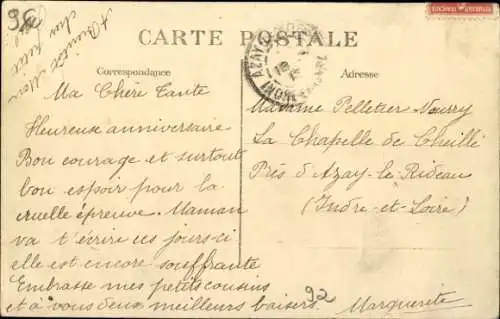 36
A Bientôt mon
cher petit
CARTE POSTALE
Correspondance
Adresse
AZAY
Ma Chère Tante
Heureuse anniversaire
Bon courage et surtout
bon espoir pour la
cruelle épreuve. Maman
va t'écrire ces jours-ci
elle est encore souffrante
Embrasse mes petits cousins
et à vous deux meilleurs baisers.
92
Marguerite
Madame Pelletier Nourry
La Chapelle de Cheillé
Près d'Azay-le-Rideau
(Indre-et-Loire)